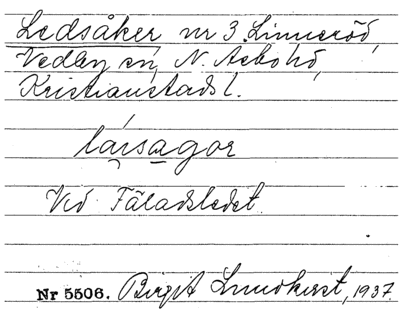 Ledsåker, nr 3 Linneröd,
Vedby sn, N. Åsbo hd,
Kristianstads l.
la̱i̯sa̱gor
Vid Fäladsledet.
Nr 5506. Birgit Lundkvist, 1937.